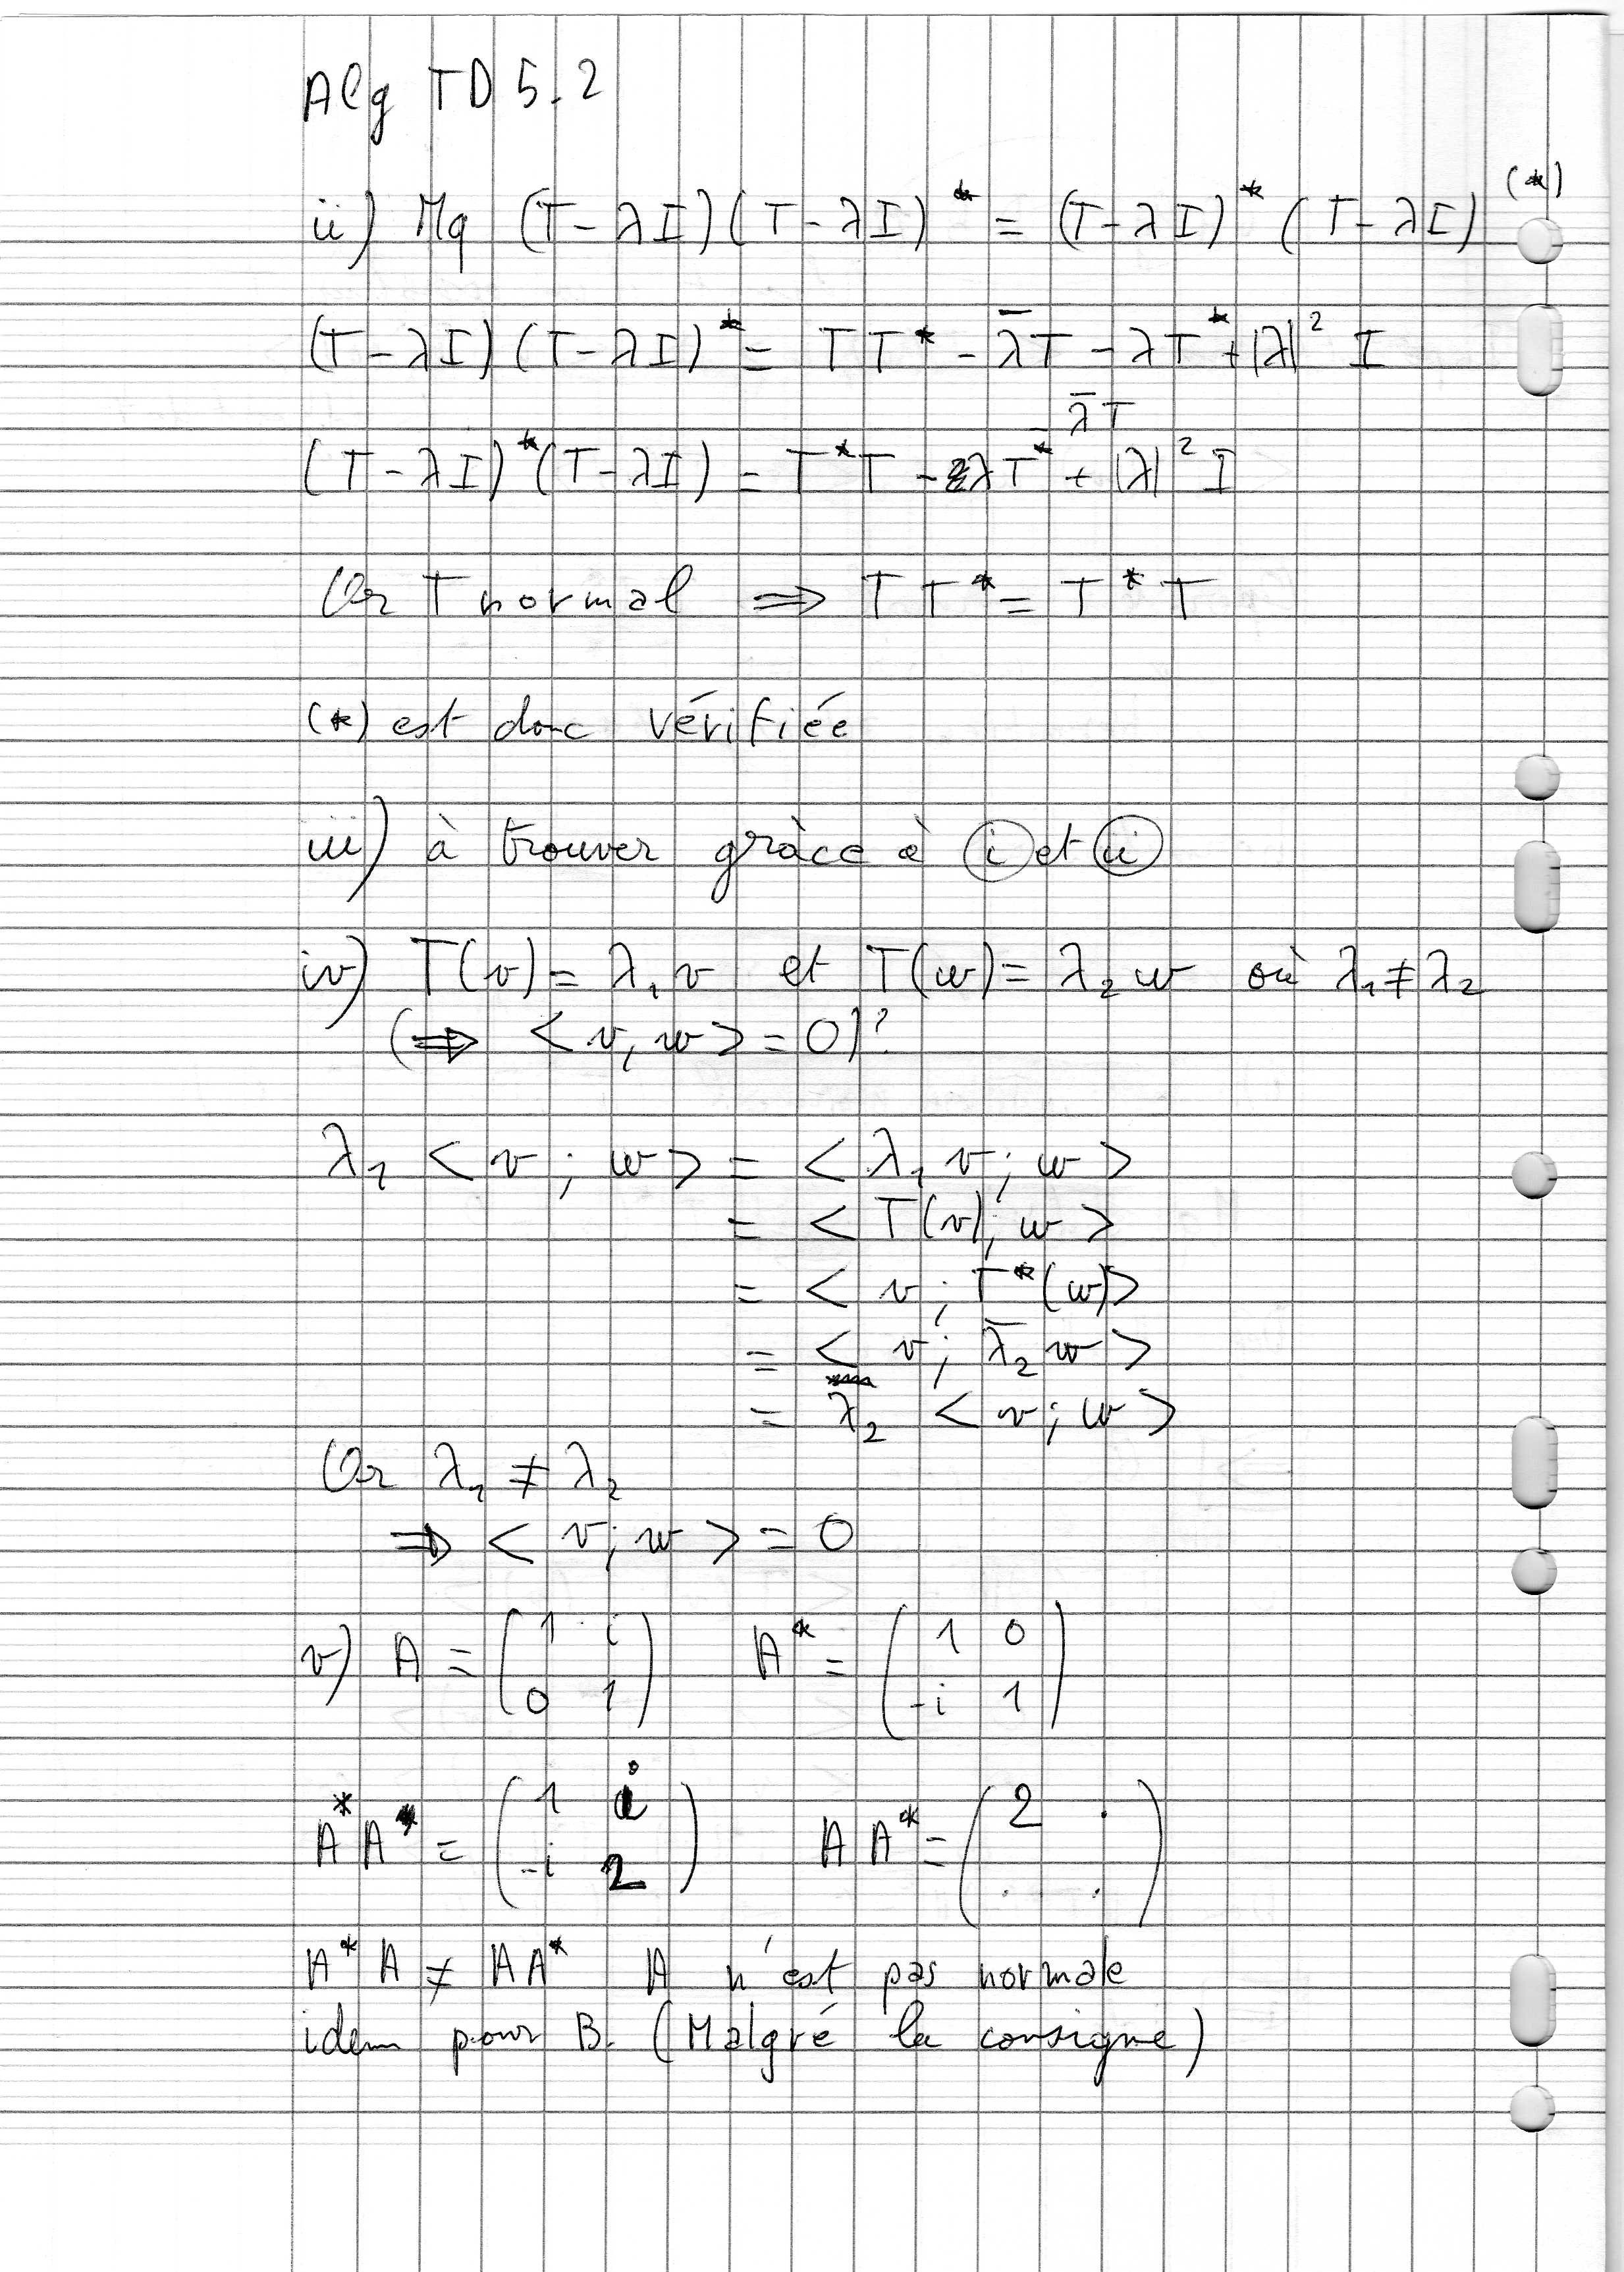 Alg TD 5.2
ii) Mq (T-λI)(T-λI)* = (T-λI)*(T-λI) (*)
(T-λI)(T-λI)* = TT* - λ̄T - λT* + |λ|² I
λ̄T
(T-λI)*(T-λI) = T*T - λT* + |λ|² I
Or T normal ⇒ TT* = T*T
(*) est donc vérifiée
iii) à trouver grâce à (i) et (ii)
iv) T(v) = λ₁v et T(w) = λ₂w où λ₁ ≠ λ₂
(⇒ <v, w> = 0)?
λ₁ <v ; w> = <λ₁v ; w>
= <T(v) ; w>
= <v ; T*(w)>
= <v ; λ̄₂w>
= λ₂ <v ; w>
Or λ₁ ≠ λ₂
⇒ <v ; w> = 0
v) A = (1 i A* = (1 0
0 1) -i 1)
A*A = (1 i AA* = (2 .
-i 2) . .)
A*A ≠ AA* A n'est pas normale
idem pour B. (Malgré la consigne)